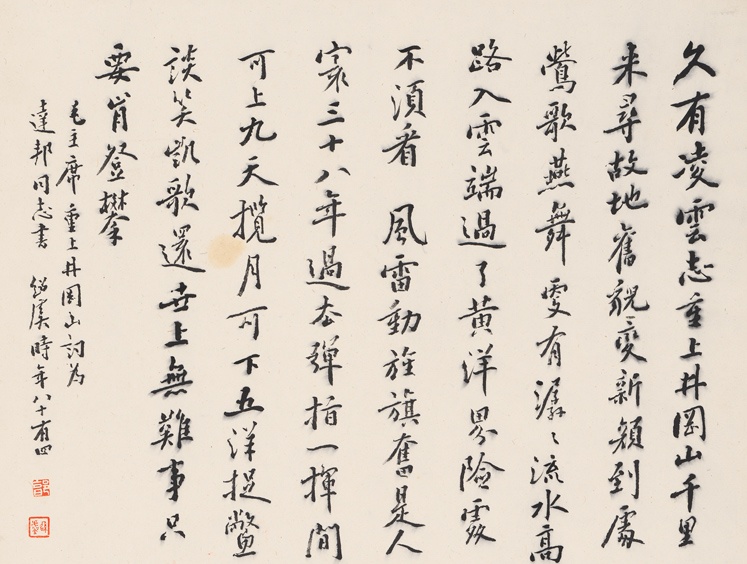 久有凌雲志重上井岡山千里
来尋故地舊貌變新顏到處
鶯歌燕舞更有潺〻流水高
路入雲端過了黄洋界險處
不須看 風雷動旌旗奮是人
寰三十八年過去彈指一揮間
可上九天攬月可下五洋捉鱉
談笑凱歌還世上無難事只
要肯登攀
毛主席重上井岡山詞為
達邦同志書 紹虞時年八十有四